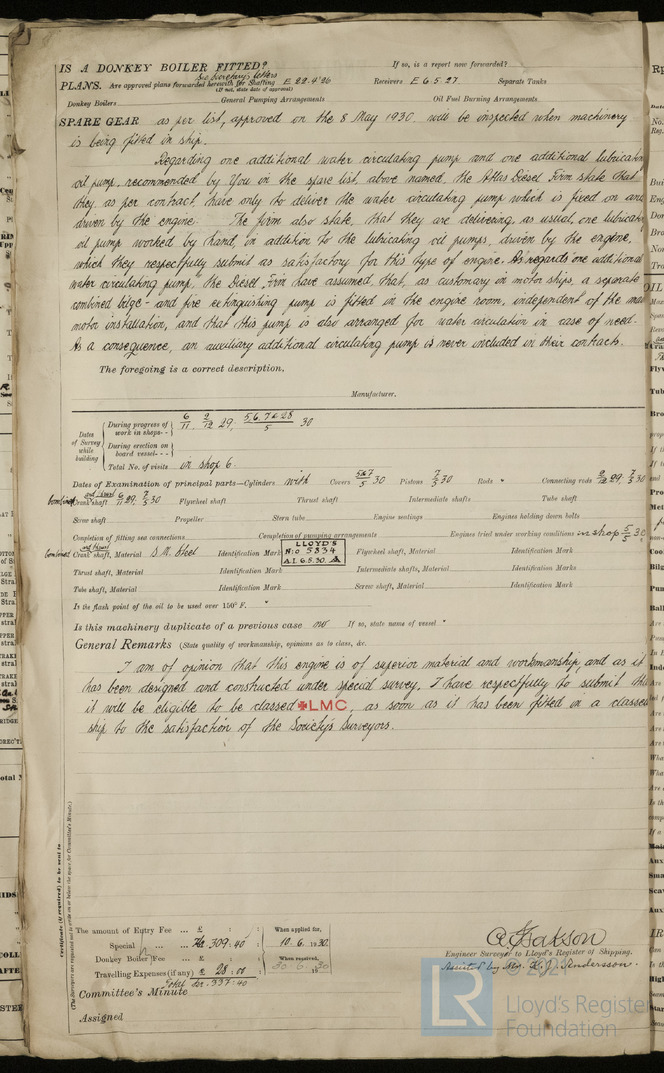 IS A DONKEY BOILER FITTED? If so, is a report now forwarded?
See Secretary's letters
PLANS. Are approved plans forwarded herewith for Shafting E 22.4.26 Receivers E 6.5.27 Separate Tanks
(If not, state date of approval)
Donkey Boilers General Pumping Arrangements Oil Fuel Burning Arrangements
SPARE GEAR as per list, approved on the 8 May 1930 will be inspected when machinery
is being fitted in ship.
Regarding one additional water circulating pump and one additional lubricatin
oil pump, recommended by You in the spare list, above named, the Atlas Diesel Firm state that
they, as per contract, have only to deliver the water circulating pump which is fixed on and
driven by the engine. The firm also state, that they are delivering, as usual, one lubricatin
oil pump worked by hand, in addition to the lubricating oil pumps, driven by the engine,
which they respectfully submit as satisfactory for this type of engine. As regards one additional
water circulating pump, the Diesel Firm have assumed, that, as customary in motor ships, a separate
combined bilge - and fire extinguishing pump is fitted in the engine room, independent of the main
motor installation, and that this pump is also arranged for water circulation in case of need.
As a consequence, an auxiliary additional circulating pump is never included in their contracts.
The foregoing is a correct description,
Manufacturer.
Dates of Survey while building
During progress of work in shops - - 6/11, 2/12 29, 5,6,7 & 28/5 30
During erection on board vessel - - -
Total No. of visits in shop 6
Dates of Examination of principal parts—Cylinders with Covers 5&7/5 30 Pistons 7/5 30 Rods " Connecting rods 2/12 29, 7/5 30
Combined and thrust
Crank shaft 6/11 29, 7/5 30 Flywheel shaft Thrust shaft Intermediate shafts Tube shaft
Screw shaft Propeller Stern tube Engine seatings Engines holding down bolts
Completion of fitting sea connections Completion of pumping arrangements Engines tried under working conditions in shop 5/5 30
Combined and thrust
Crank shaft, Material S.M. Steel Identification Mark LLOYD'S No 5834 A.I. 6.5.30. Flywheel shaft, Material Identification Mark
Thrust shaft, Material Identification Mark Intermediate shafts, Material Identification Marks
Tube shaft, Material Identification Mark Screw shaft, Material Identification Mark
Is the flash point of the oil to be used over 150° F. "
Is this machinery duplicate of a previous case no If so, state name of vessel "
General Remarks (State quality of workmanship, opinions as to class, &c.
I am of opinion that this engine is of superior material and workmanship, and as it
has been designed and constructed under special survey, I have respectfully to submit that
it will be eligible to be classed ✠LMC, as soon as it has been fitted in a classed
ship to the satisfaction of the Society's Surveyors.
Certificate (if required) to be sent to
(The Surveyors are requested not to write on or below the space for Committee's Minute.)
The amount of Entry Fee ... £ : : When applied for,
Special ... ... Kr. 309:40 : 10.6.1930.
Donkey Boiler Fee ... £ : : When received,
Travelling Expenses (if any) £ 28:00 : 30 6 1930
Total Kr. 337:40
Engineer Surveyor to Lloyd's Register of Shipping.
Assisted by Mr. K. J. Andersson.
Committee's Minute
Assigned
LR
© 2021
Lloyd's Register
Foundation